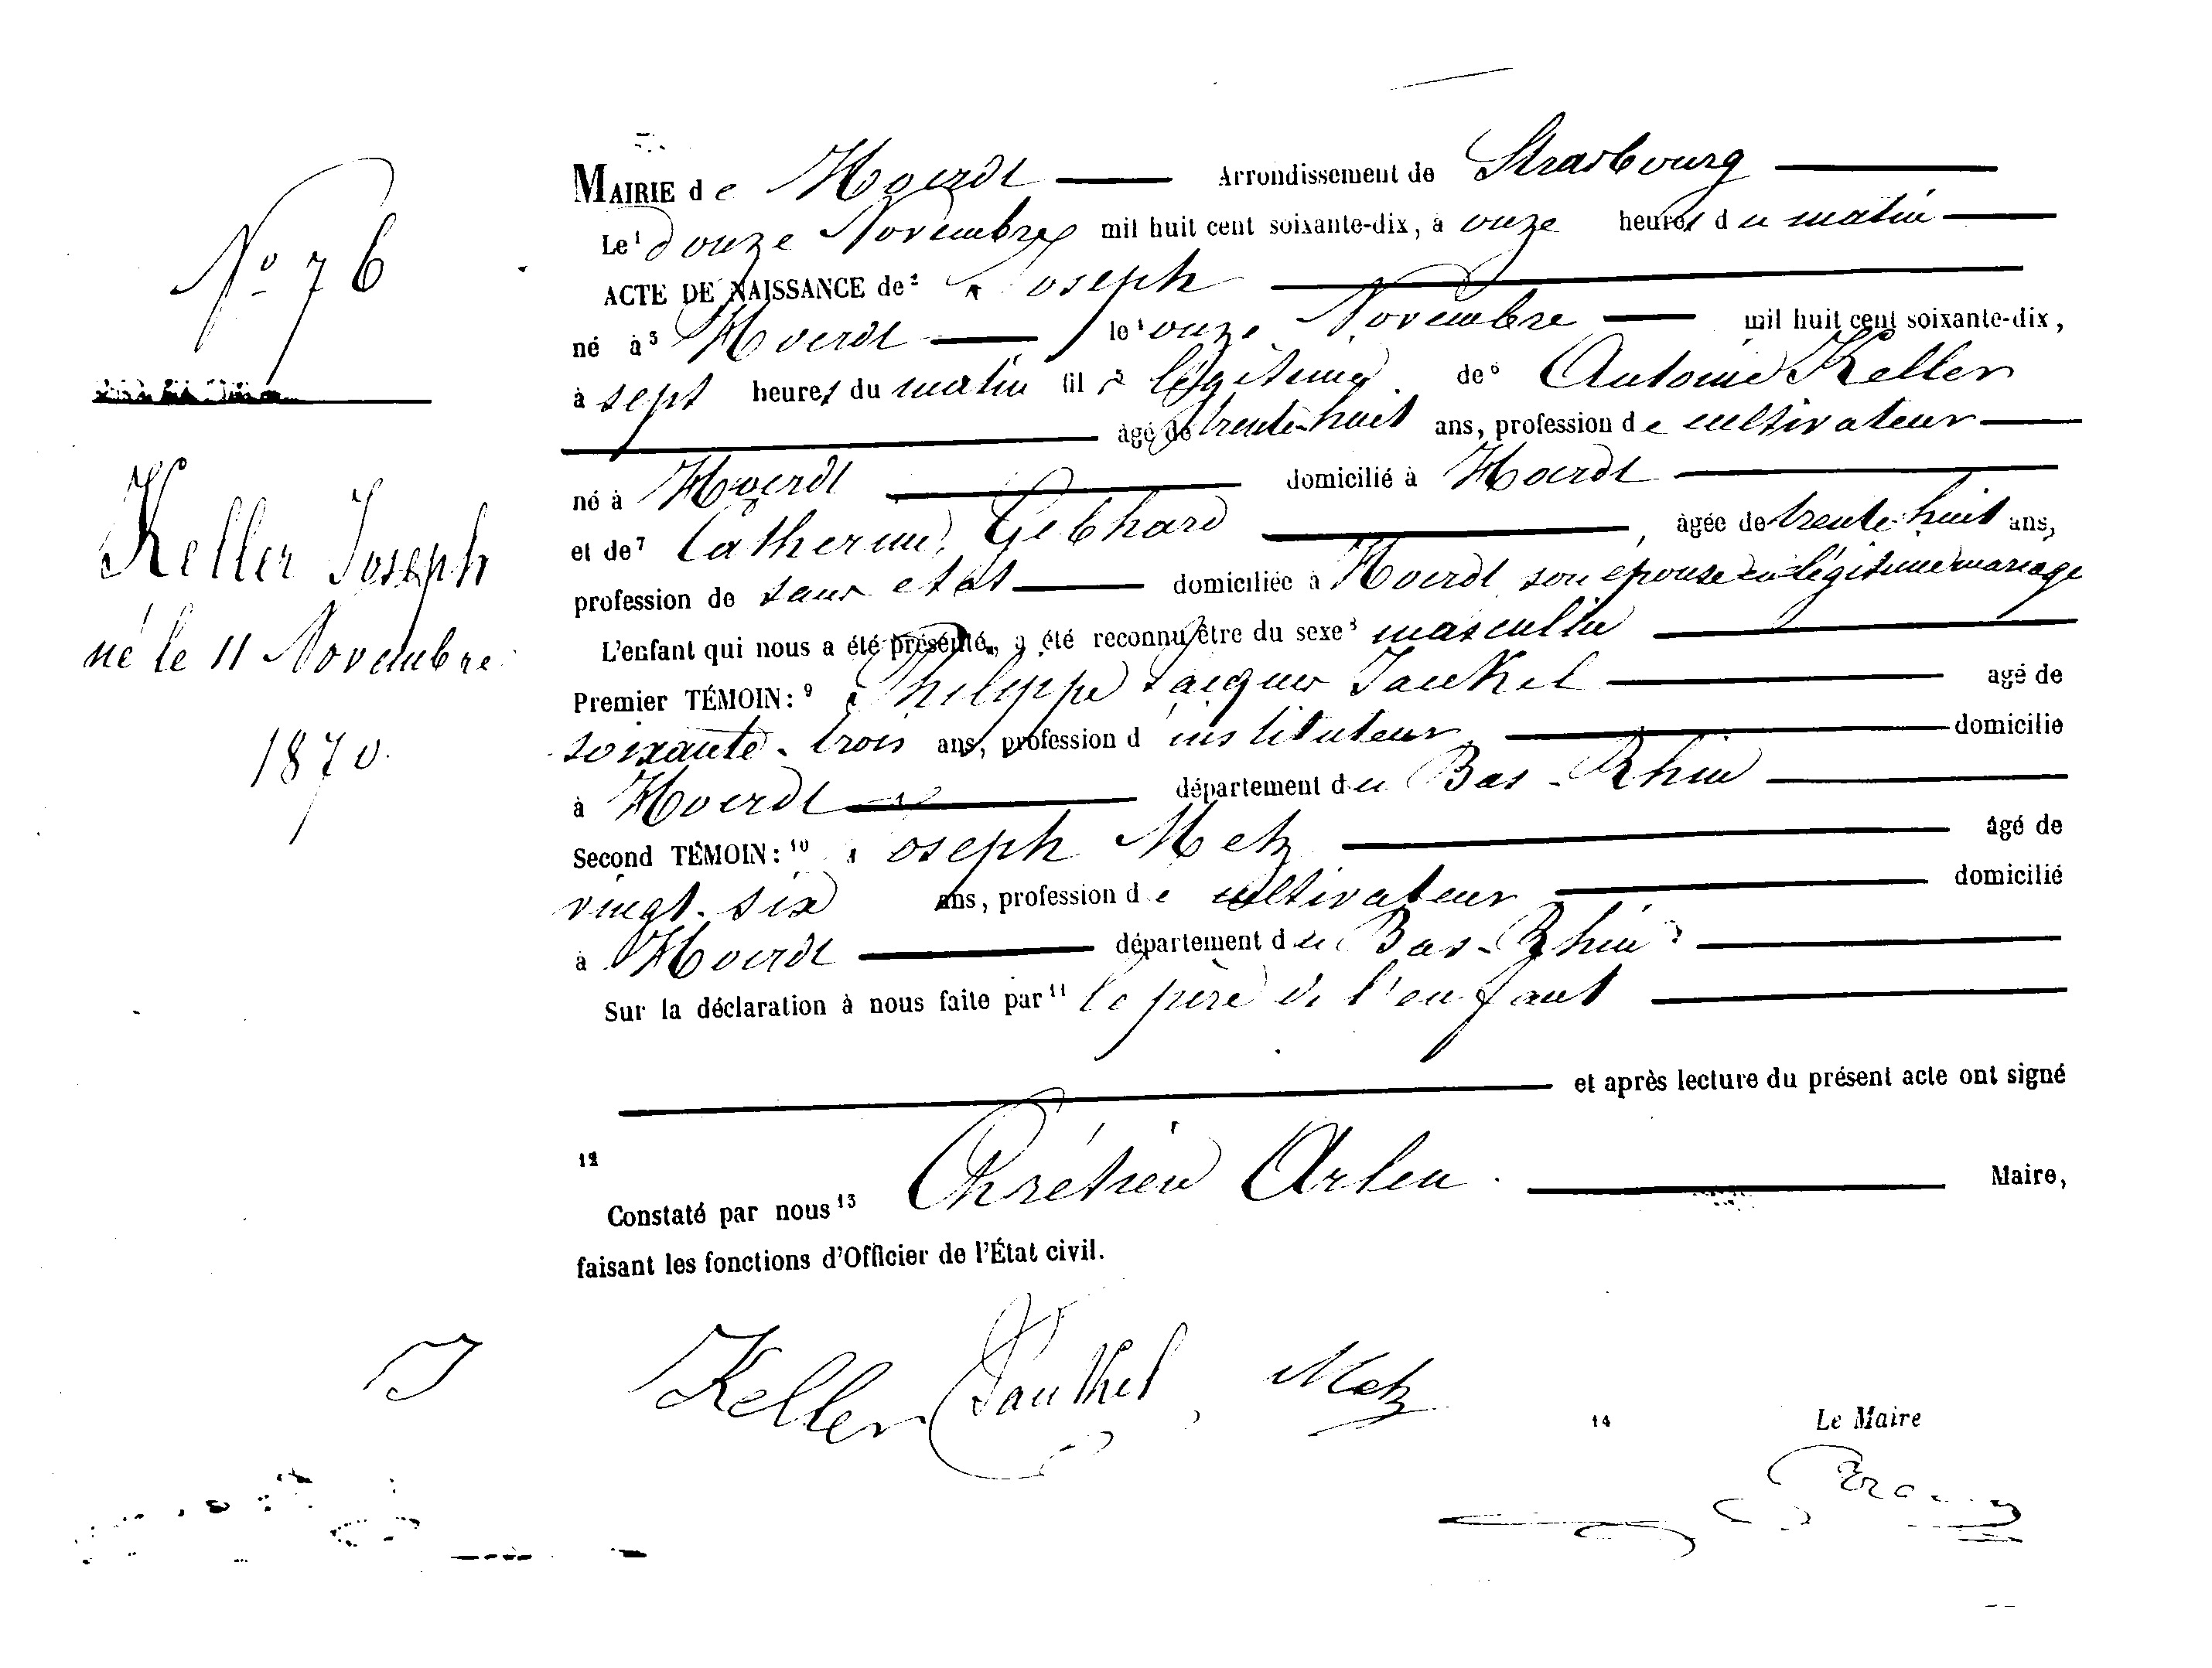 No 76
Keller Joseph
né le 11 Novembre
1870.
MAIRIE de Hoerdt Arrondissement de Strasbourg
Le 1 douze Novembre mil huit cent soixante-dix, à onze heures du matin
ACTE DE NAISSANCE de 2 Joseph
né à 3 Hoerdt le 4 onze Novembre mil huit cent soixante-dix,
à sept heures du matin fils 5 légitime de 6 Antoine Keller
âgé de trente-huit ans, profession de cultivateur
né à Hoerdt domicilié à Hoerdt
et de 7 Catherine Gebhard, âgée de trente-huit ans,
profession de sans état domiciliée à Hoerdt son épouse en légitime mariage
L'enfant qui nous a été présenté, a été reconnu être du sexe 8 masculin
Premier TÉMOIN: 9 Philippe Jacques
agé de
soixante-trois ans, profession d'instituteur domicilié
à Hoerdt département du Bas-Rhin
Second TÉMOIN: 10 Joseph Metz âgé de
vingt-six ans, profession de cultivateur domicilié
à Hoerdt département du Bas-Rhin
Sur la déclaration à nous faite par 11 le père de l'enfant
et après lecture du présent acte ont signé
12
Constaté par nous 13 Chrétien Arlen Maire,
faisant les fonctions d'Officier de l'État civil.
Keller Metz
14 Le Maire